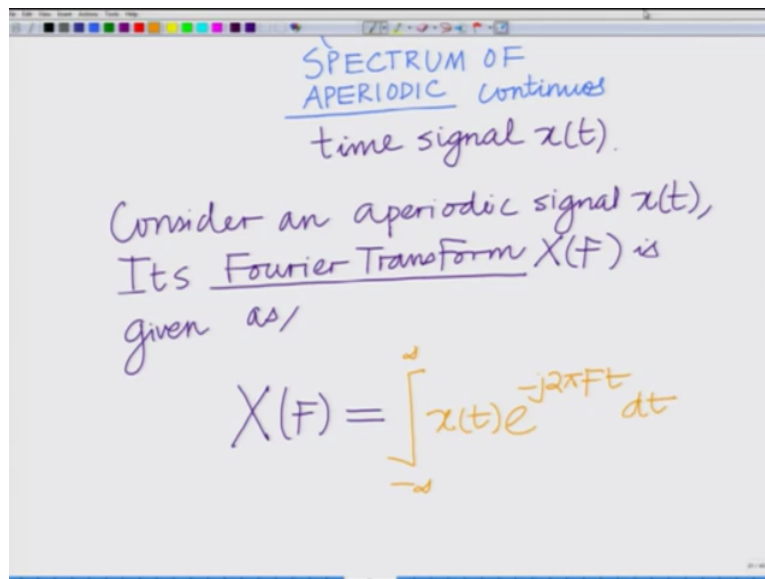 SPECTRUM OF
APERIODIC continues
time signal x(t).
Consider an aperiodic signal x(t),
Its Fourier Transform X(F) is
given as/
X(F) = ∫_{-∞}^{∞} x(t) e^{-j2πFt} dt